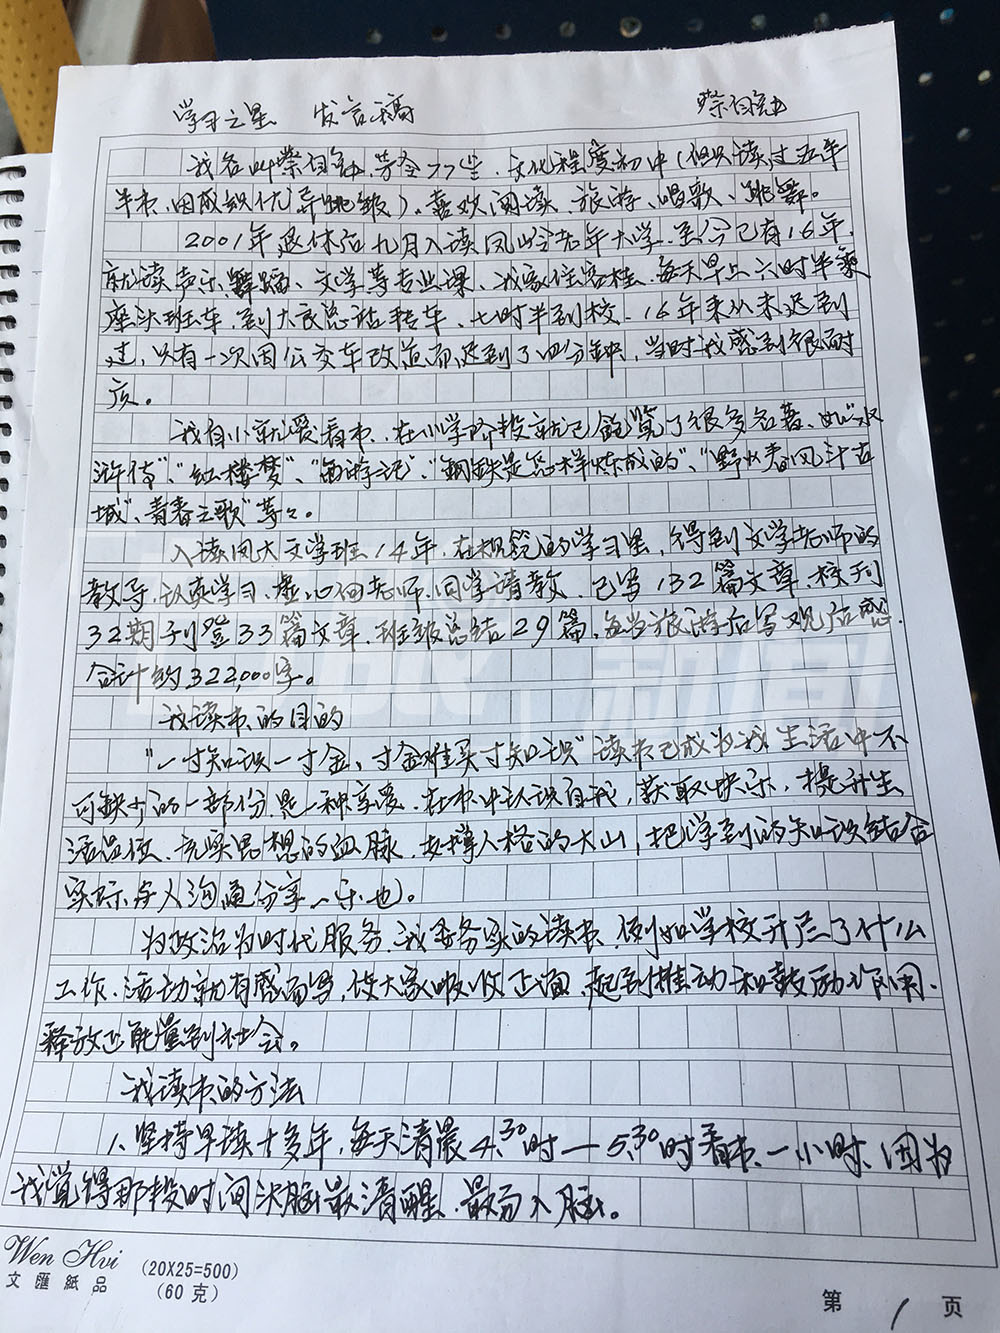 学习之星 发言稿 蔡
我名叫蔡 今77岁、文化程度初中(但只读过五年
半书、因成绩优异跳级)、喜欢阅读、旅游、唱歌、跳舞。
2001年退休后九月入读凤岭老年大学、至今已有16年、
就读声乐、舞蹈、文学等专业课、我家住容桂、每天早上六时半乘
座头班车、到大良总站转车、七时半到校、16年来从未迟到
过、只有一次因公交车改道而迟到了四分钟、当时我感到很内
疚。
我自小就爱看书、在小学阶段就已饱览了很多名著、如"水
浒传"、"红楼梦"、"西游记"、"钢铁是怎样炼成的"、"野火春风斗古
城"、青春之歌"等々。
入读凤大文学班14年、在 的学习里、得到文学老师的
教导、认真学习、虚心向老师、同学请教、已写132篇文章、校刊
32期刊登33篇文章、班级总结29篇、每当旅游后写观后感、
合计约322,000字。
我读书的目的
"一寸知识一寸金、寸金难买寸知识"读书已成为我生活中不
可缺少的一部份、是一种享受、在书中认识自我,获取快乐,提升生
活品位、充实思想的血脉、 人格的大山,把学到的知识结合
实际、与人沟通分享、乐也)。
为政治为时代服务、我 务实的读书、例如学校开展了什么
工作、活动就有感而写,使大家吸收正面、起到推动和鼓励作用、
释放正能量到社会。
我读书的方法
1、坚持早读十多年,每天清晨4.30时—5.30时看书、一小时、因为
我觉得那段时间头脑最清醒、最易入脑。
Wen Hui
文匯紙品
(20X25=500)
(60克)
第 1 页